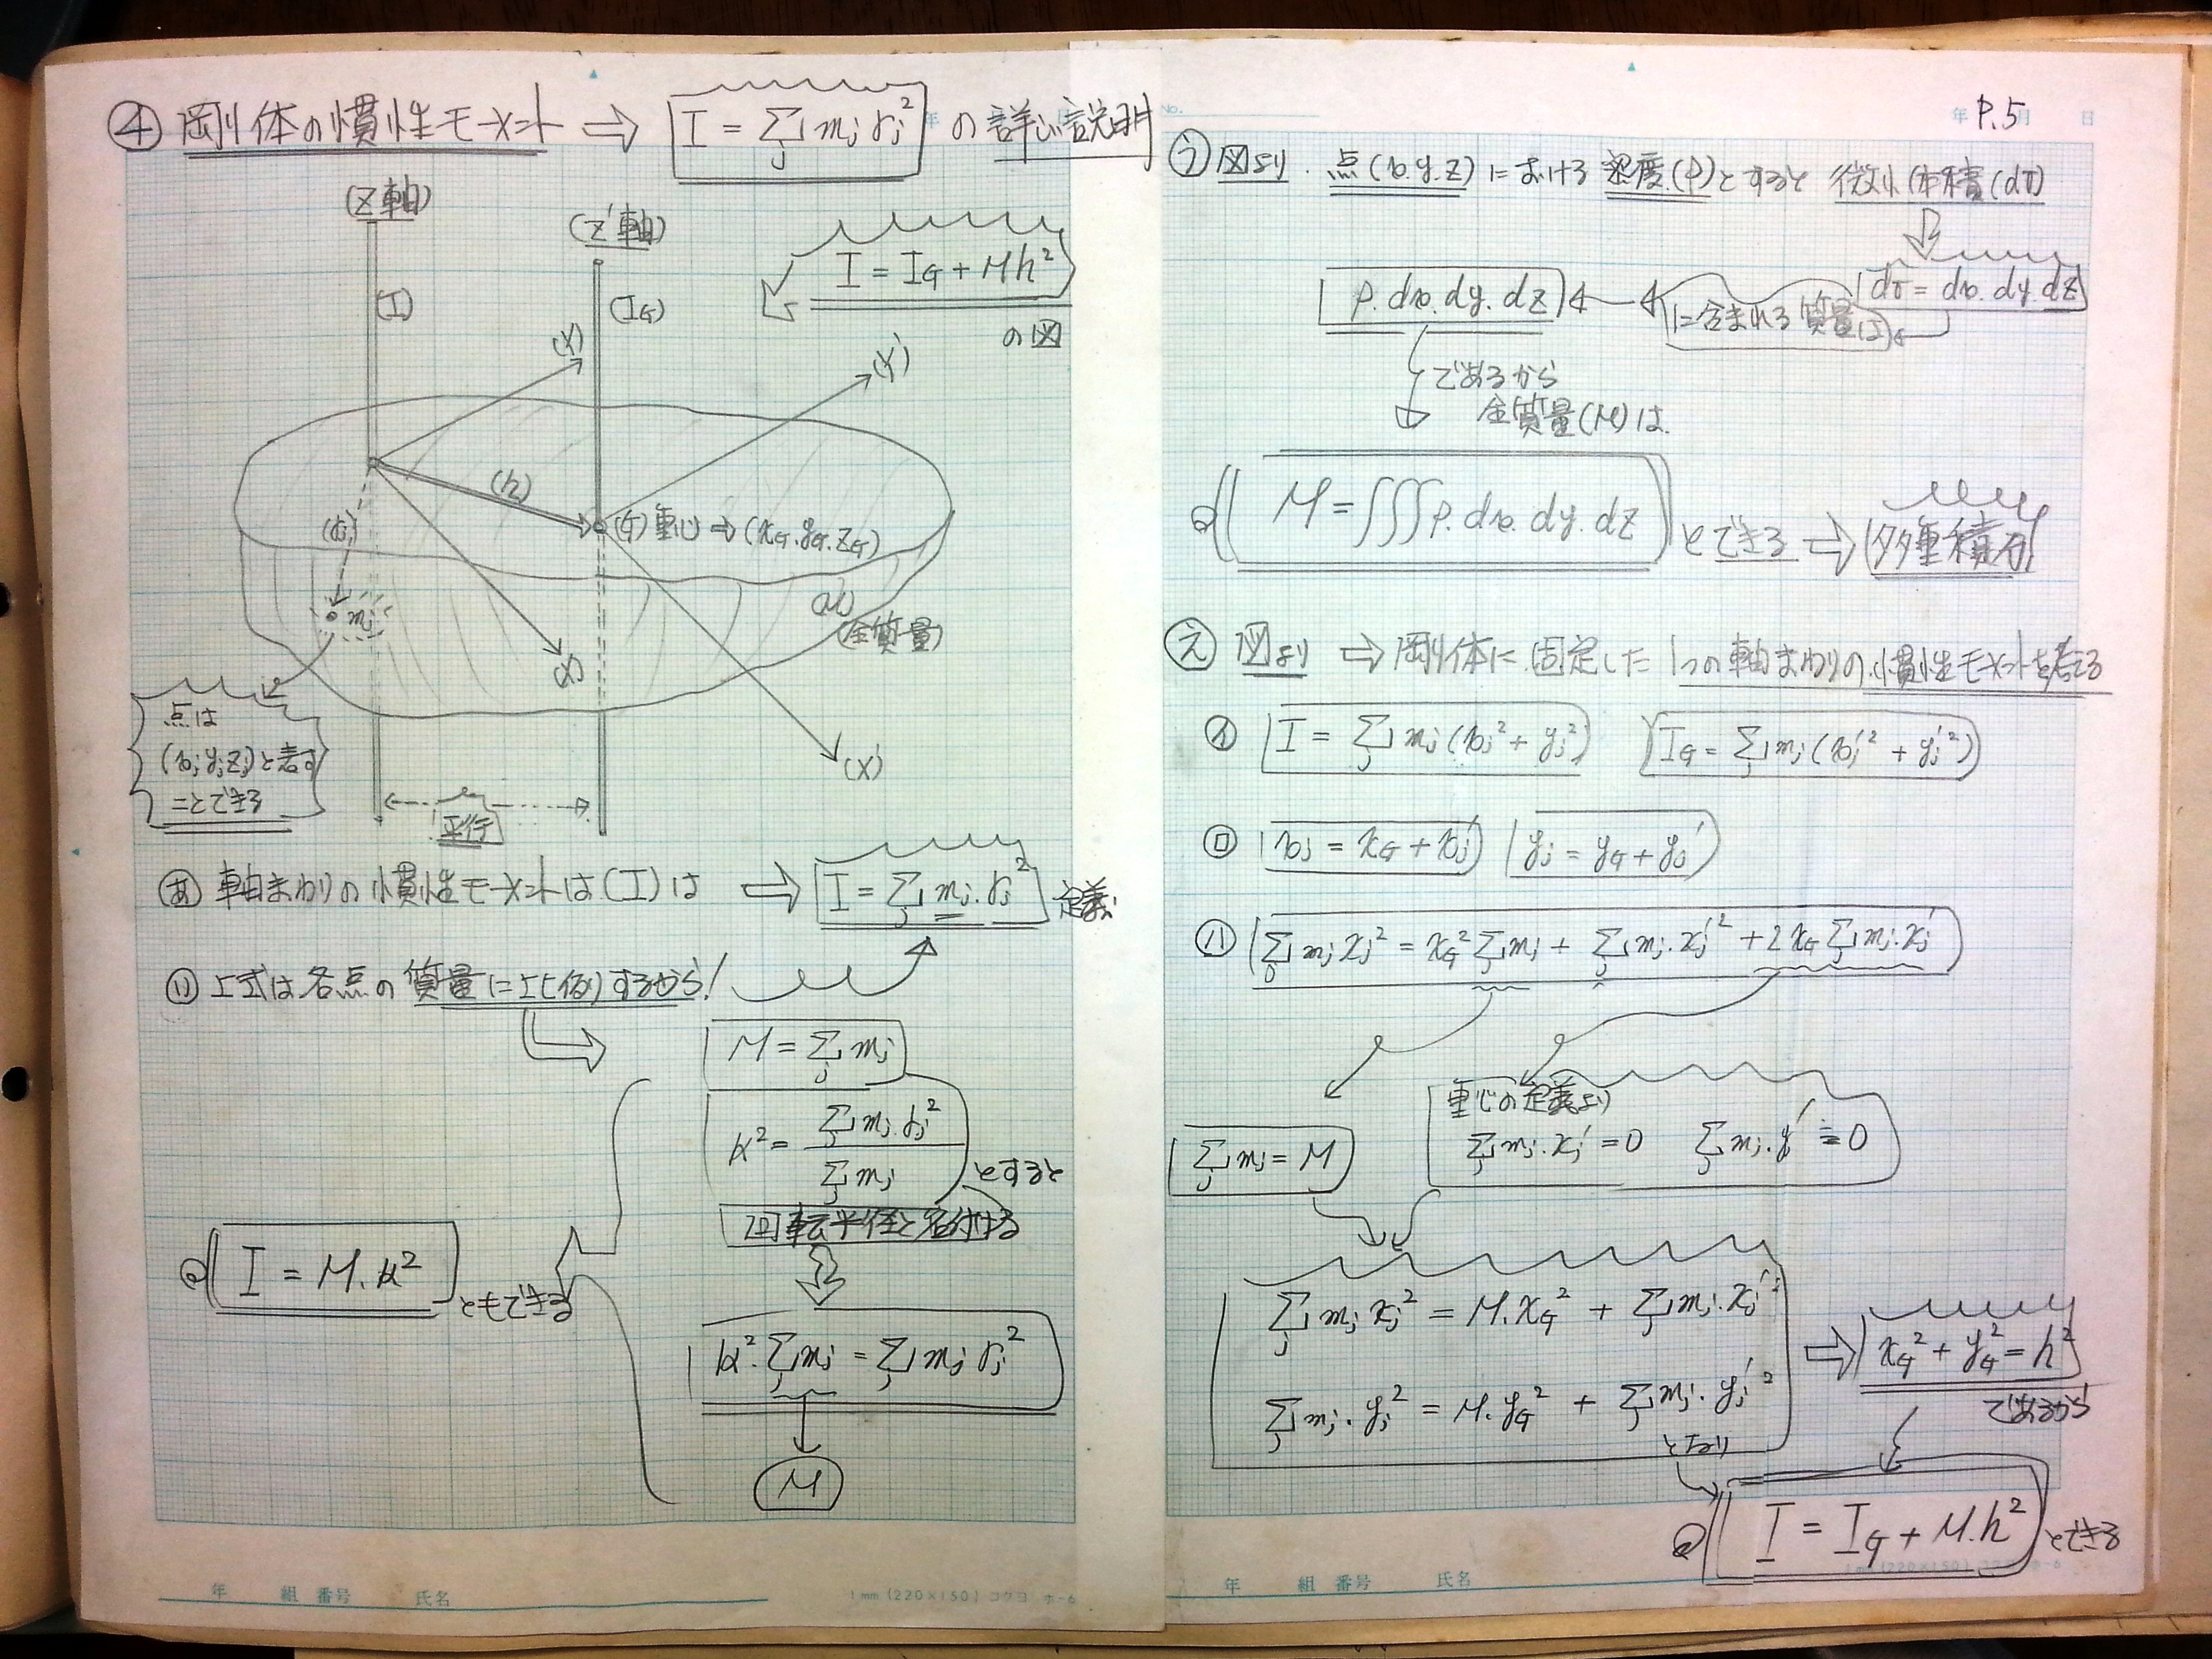 ④ 剛体の慣性モーメント ⇒ I = Σ_j m_j r_j² の詳しい説明
(Z軸)
(Z'軸)
I = I_G + Mh²
の図
(I)
(I_G)
(Y)
(Y')
(h)
(G)重心⇒(x_G.y_G.Z_G)
(r_j)
m_j
(M)
(全質量)
(X)
(X')
点は
(x_j y_j z_j)と表す
ことできる
平行
あ 軸まわりの慣性モーメントは(I)は ⇒ I = Σ_j m_j.r_j² 定義
い 上式は各点の質量に比例するから!
M = Σ_j m_j
k² = Σ_j m_j.r_j² / Σ_j m_j とすると
回転半径と名付ける
I = M.k² ともできる
k².Σ_j m_j = Σ_j m_j r_j²
M
年 組 番号 氏名
1mm (220×150) コクヨ ホ-6
No.
年 月 日
P.5
う 図より.点(x.y.z)における密度(ρ)とすると 微小体積(dτ)
dτ = dx.dy.dz
に含まれる質量は
ρ.dx.dy.dz
であるから
全質量(M)は
M = ∫∫∫ρ.dx.dy.dz とできる ⇒ 多重積分
え 図より ⇒ 剛体に固定した1つの軸まわりの慣性モーメントを考える
イ I = Σ_j m_j (x_j² + y_j²) I_G = Σ_j m_j (x_j'² + y_j'²)
ロ x_j = x_G + x_j' y_j = y_G + y_j'
ハ Σ_j m_j x_j² = x_G² Σ_j m_j + Σ_j m_j.x_j'² + 2x_G Σ_j m_j.x_j'
重心の定義より
Σ_j m_j = M
Σ_j m_j.x_j' = 0 Σ_j m_j.y_j' = 0
Σ_j m_j x_j² = M.x_G² + Σ_j m_j.x_j'²
⇒ x_G² + y_G² = h²
Σ_j m_j.y_j² = M.y_G² + Σ_j m_j.y_j'²
であるから
となり
I = I_G + M.h² とできる
年 組 番号 氏名